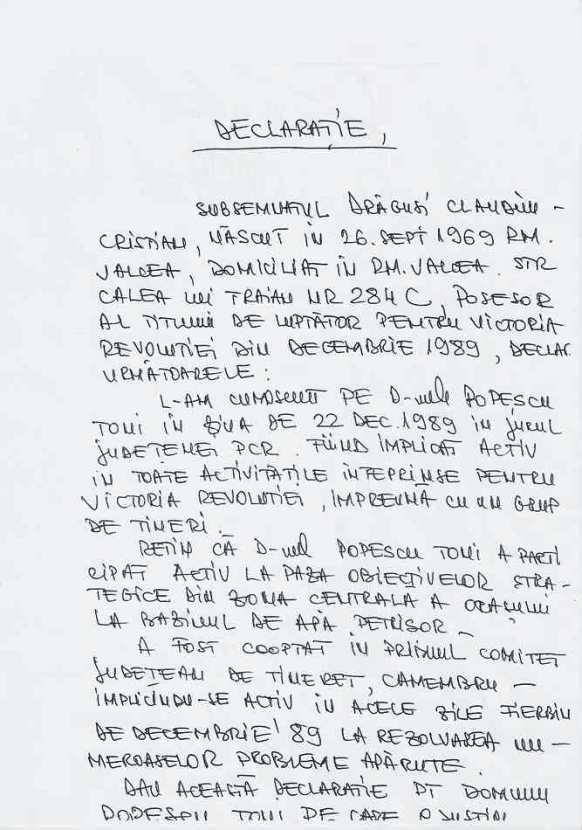 DECLARAȚIE,
SUBSEMNATUL DRĂGUȘI CLAUDIU –
CRISTIAN, NĂSCUT IN 26.SEPT 1969 RM.
VALCEA, DOMICILIAT IN RM.VALCEA. STR
CALEA LUI TRAIAN NR 284 C, POSESOR
AL TITLULUI DE LUPTĂTOR PENTRU VICTORIA
REVOLUTIEI DIN DECEMBRIE 1989, DECLAR
URMĂTOARELE:
L-AM CUNOSCUT PE D-nul POPESCU
TONI IN ZIUA DE 22 DEC.1989 IN JURUL
JUDEȚENEI PCR. FIIND IMPLICAT ACTIV
IN TOATE ACTIVITAȚILE INTEPRINSE PENTRU
VICTORIA REVOLUTIEI, IMPREUNĂ CU UN GRUP
DE TINERI.
RETIN CĂ D-nul POPESCU TONI A PARTI
CIPAT ACTIV LA PAZA OBIECTIVELOR STRA-
TEGICE DIN ZONA CENTRALA A ORAȘULUI
LA BAZINUL DE APĂ PETRISOR –
A FOST COOPTAT IN PRIMUL COMITET
JUDEȚEAN DE TINERET, CAMEMBRU –
IMPLICÎNDU-SE ACTIV IN ACELE ZILE FIERBIN
DE DECEMBRIE '89 LA REZOLVAREA NU –
MEROASELOR PROBLEME APĂRUTE.
DAU ACEASTĂ DECLARATIE PT DOMNUL
POPESCU TONI DE CARE O SUSTIN